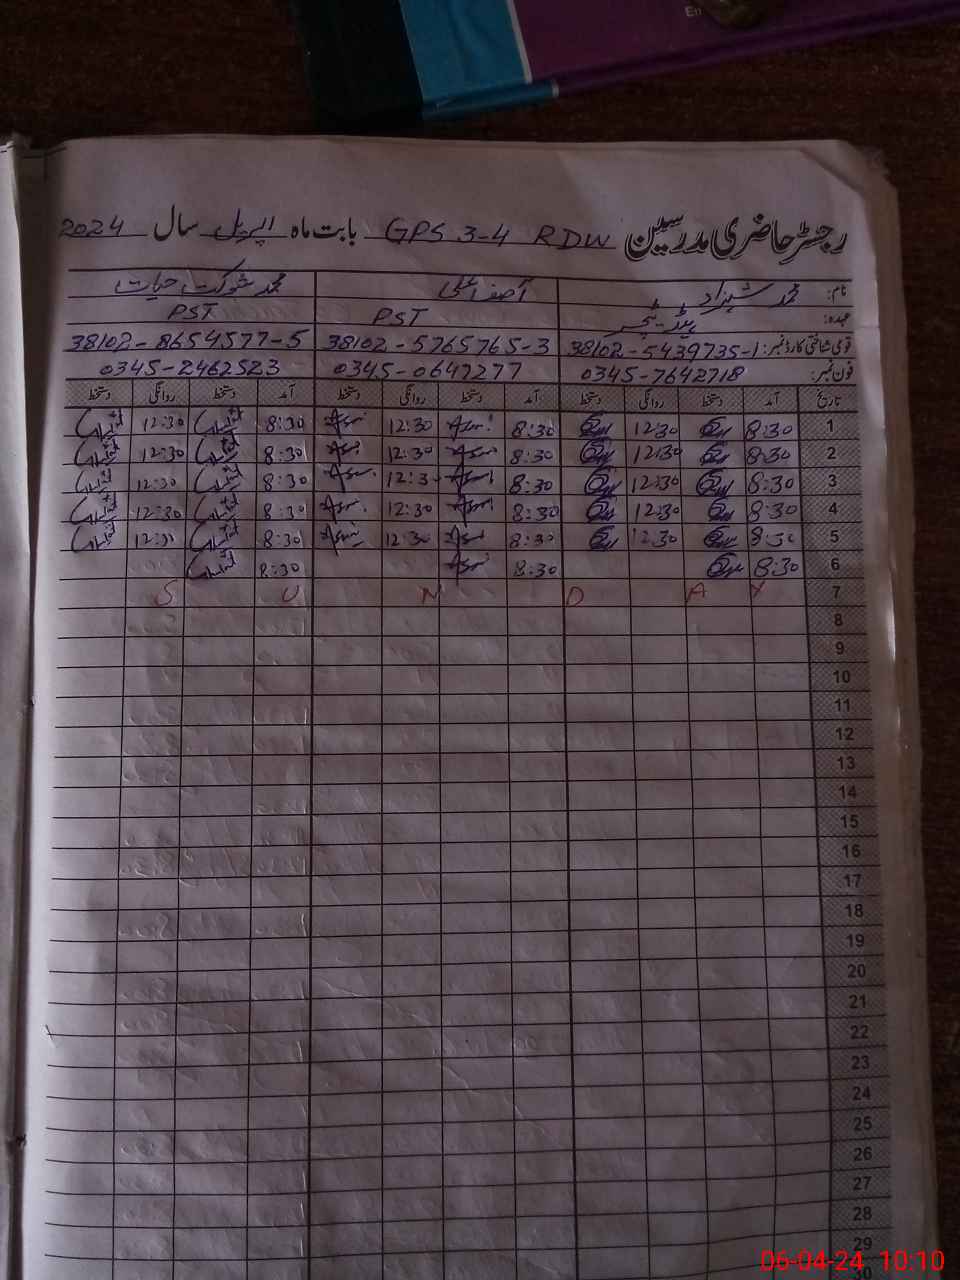 En
رجسٹر حاضری مدرسین GPS 3-4 RDW بابت ماہ اپریل سال 2024
نام: محمد شہزاد آصف علی محمد شوکت حیات
عہدہ: ہیڈ ٹیچر PST PST
قومی شناختی کارڈ نمبر: 38102-5439735-1 38102-5765765-3 38102-8654577-5
فون نمبر: 0345-7642718 0345-0647277 0345-2462523
تاریخ آمد دستخط روانگی دستخط آمد دستخط روانگی دستخط آمد دستخط روانگی دستخط
1 8:30 12:30 8:30 12:30 8:30 12:30
2 8:30 12:30 8:30 12:30 8:30 12:30
3 8:30 12:30 8:30 12:3 8:30 12:30
4 8:30 12:30 8:30 12:30 8:30 12:30
5 8:30 12:30 8:30 12:30 8:30
6 8:30 8:30 8:30
7 S U N D A Y
8
9
10
11
12
13
14
15
16
17
18
19
20
21
22
23
24
25
26
27
28
29
30
06-04-24 10:10